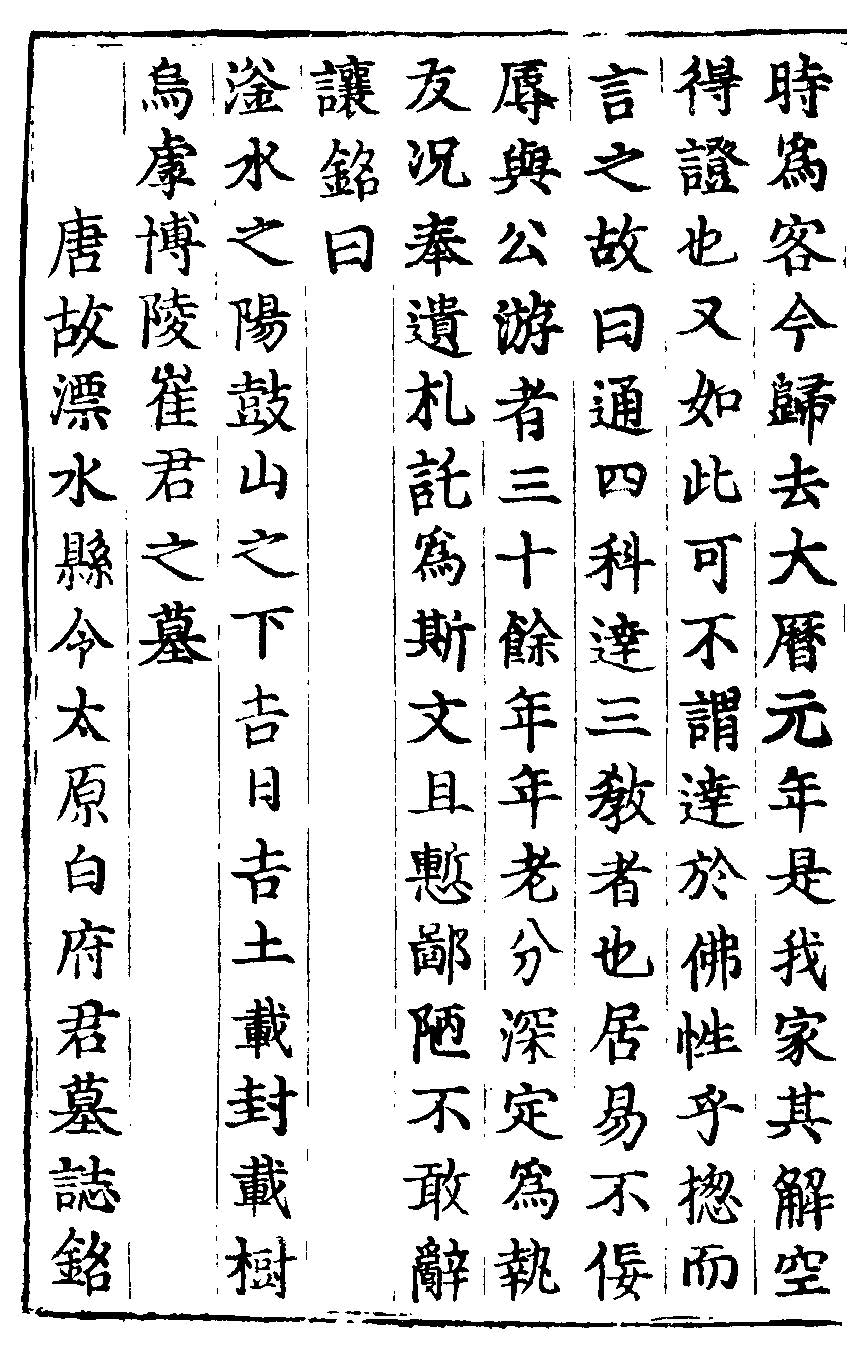 時為客今歸去大曆元年是我家其解空
得證也又如此可不謂達於佛性乎揔而
言之故曰通四科達三教者也居易不佞
辱與公游者三十餘年年老分深定為執
友况奉遺札託為斯文且慙鄙陋不敢辭
讓銘曰
滏水之陽鼓山之下吉日吉土載封載樹
烏虖博陵崔君之墓
唐故漂水縣令太原白府君墓誌銘